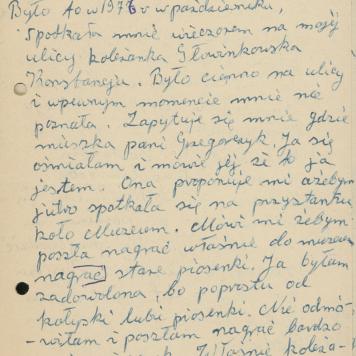 Było to w 1976 r w październiku,
Spotkała mnie wieczorem na mojej
ulicy koleżanka Słowinkowska
Konstancja. Było ciemno na ulicy
i w pewnym momencie mnie nie
poznała. Zapytuje się mnie gdzie
mieszka pani Grzegorczyk. Ja się
ośmiałam i mówię jej że to ja
jestem. Ona proponuje mi ażebym
jutro spotkała się na przystanku
koło Muzeum. Mówi mi żebym
poszła nagrać właśnie do muzeum
nagrać stare piosenki. Ja byłam
zadowolona, bo poprostu od
kołyski lubię piosenki. Nie odmó-
-wiłam i poszłam nagrać bardzo
Właśnie koleża-